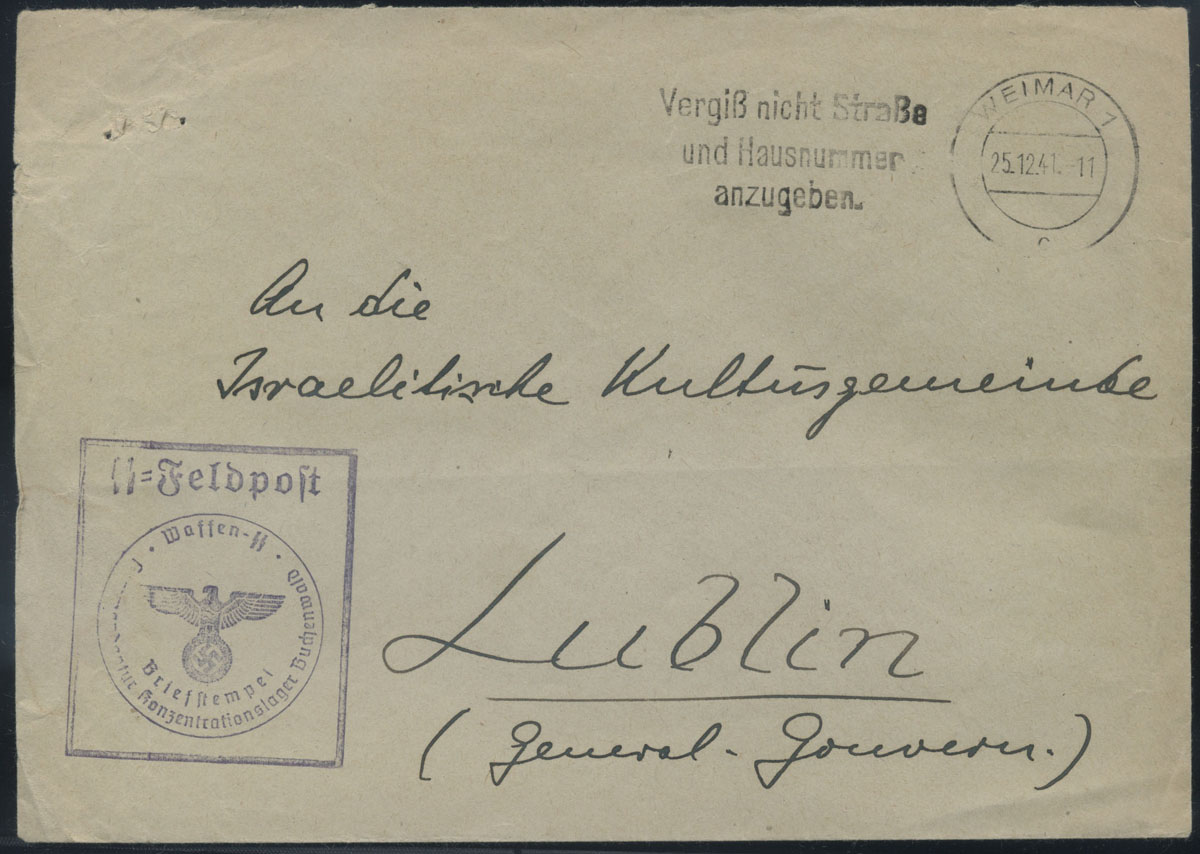 Vergiß nicht Straße
und Hausnummer
anzugeben.
WEIMAR 1
25.12.41.-11
c
An die
Israelitische Kultusgemeinde
SS=Feldpost
Waffen-SS
Konzentrationslager Buchenwald
Briefstempel
Lublin
(General-Gouvern.)